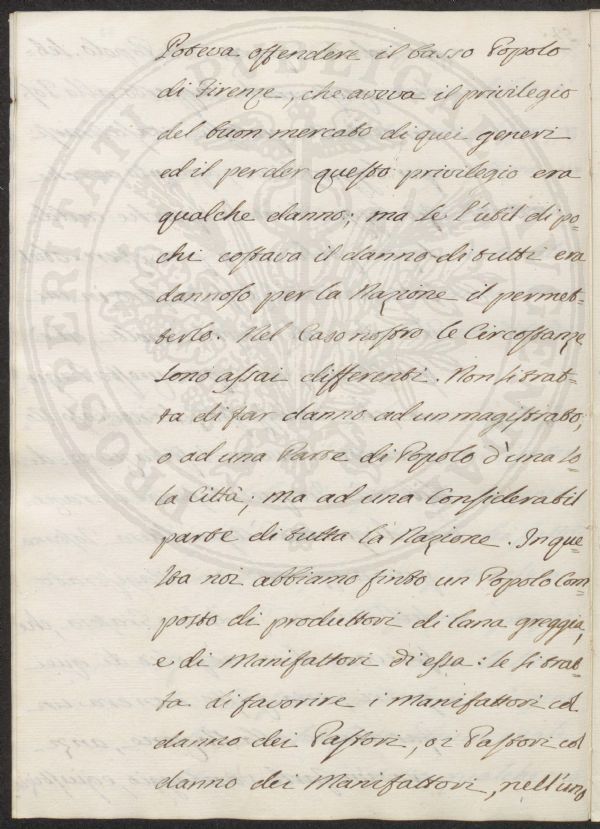 Poteva offendere il basso Popolo
di Firenze, che aveva il privilegio
del buon mercato di quei generi
ed il perder questo privilegio era
qualche danno; ma se l'util di po=
chi costava il danno di tutti era
dannoso per la Nazione il permet=
terlo. Nel Caso nostro le Circostanze
sono assai differenti. Non si trat=
ta di far danno ad un magistrato,
o ad una Parte di Popolo d'una so=
la Città; ma ad una Considerabil
parte di tutta la Nazione. In que=
sta noi abbiamo finto un Popolo Com=
posto di produttori di lana greggia,
e di Manifattori di essa: se si trat=
ta di favorire i Manifattori col
danno dei Pastori, o i Pastori col
danno dei Manifattori, nell'uno